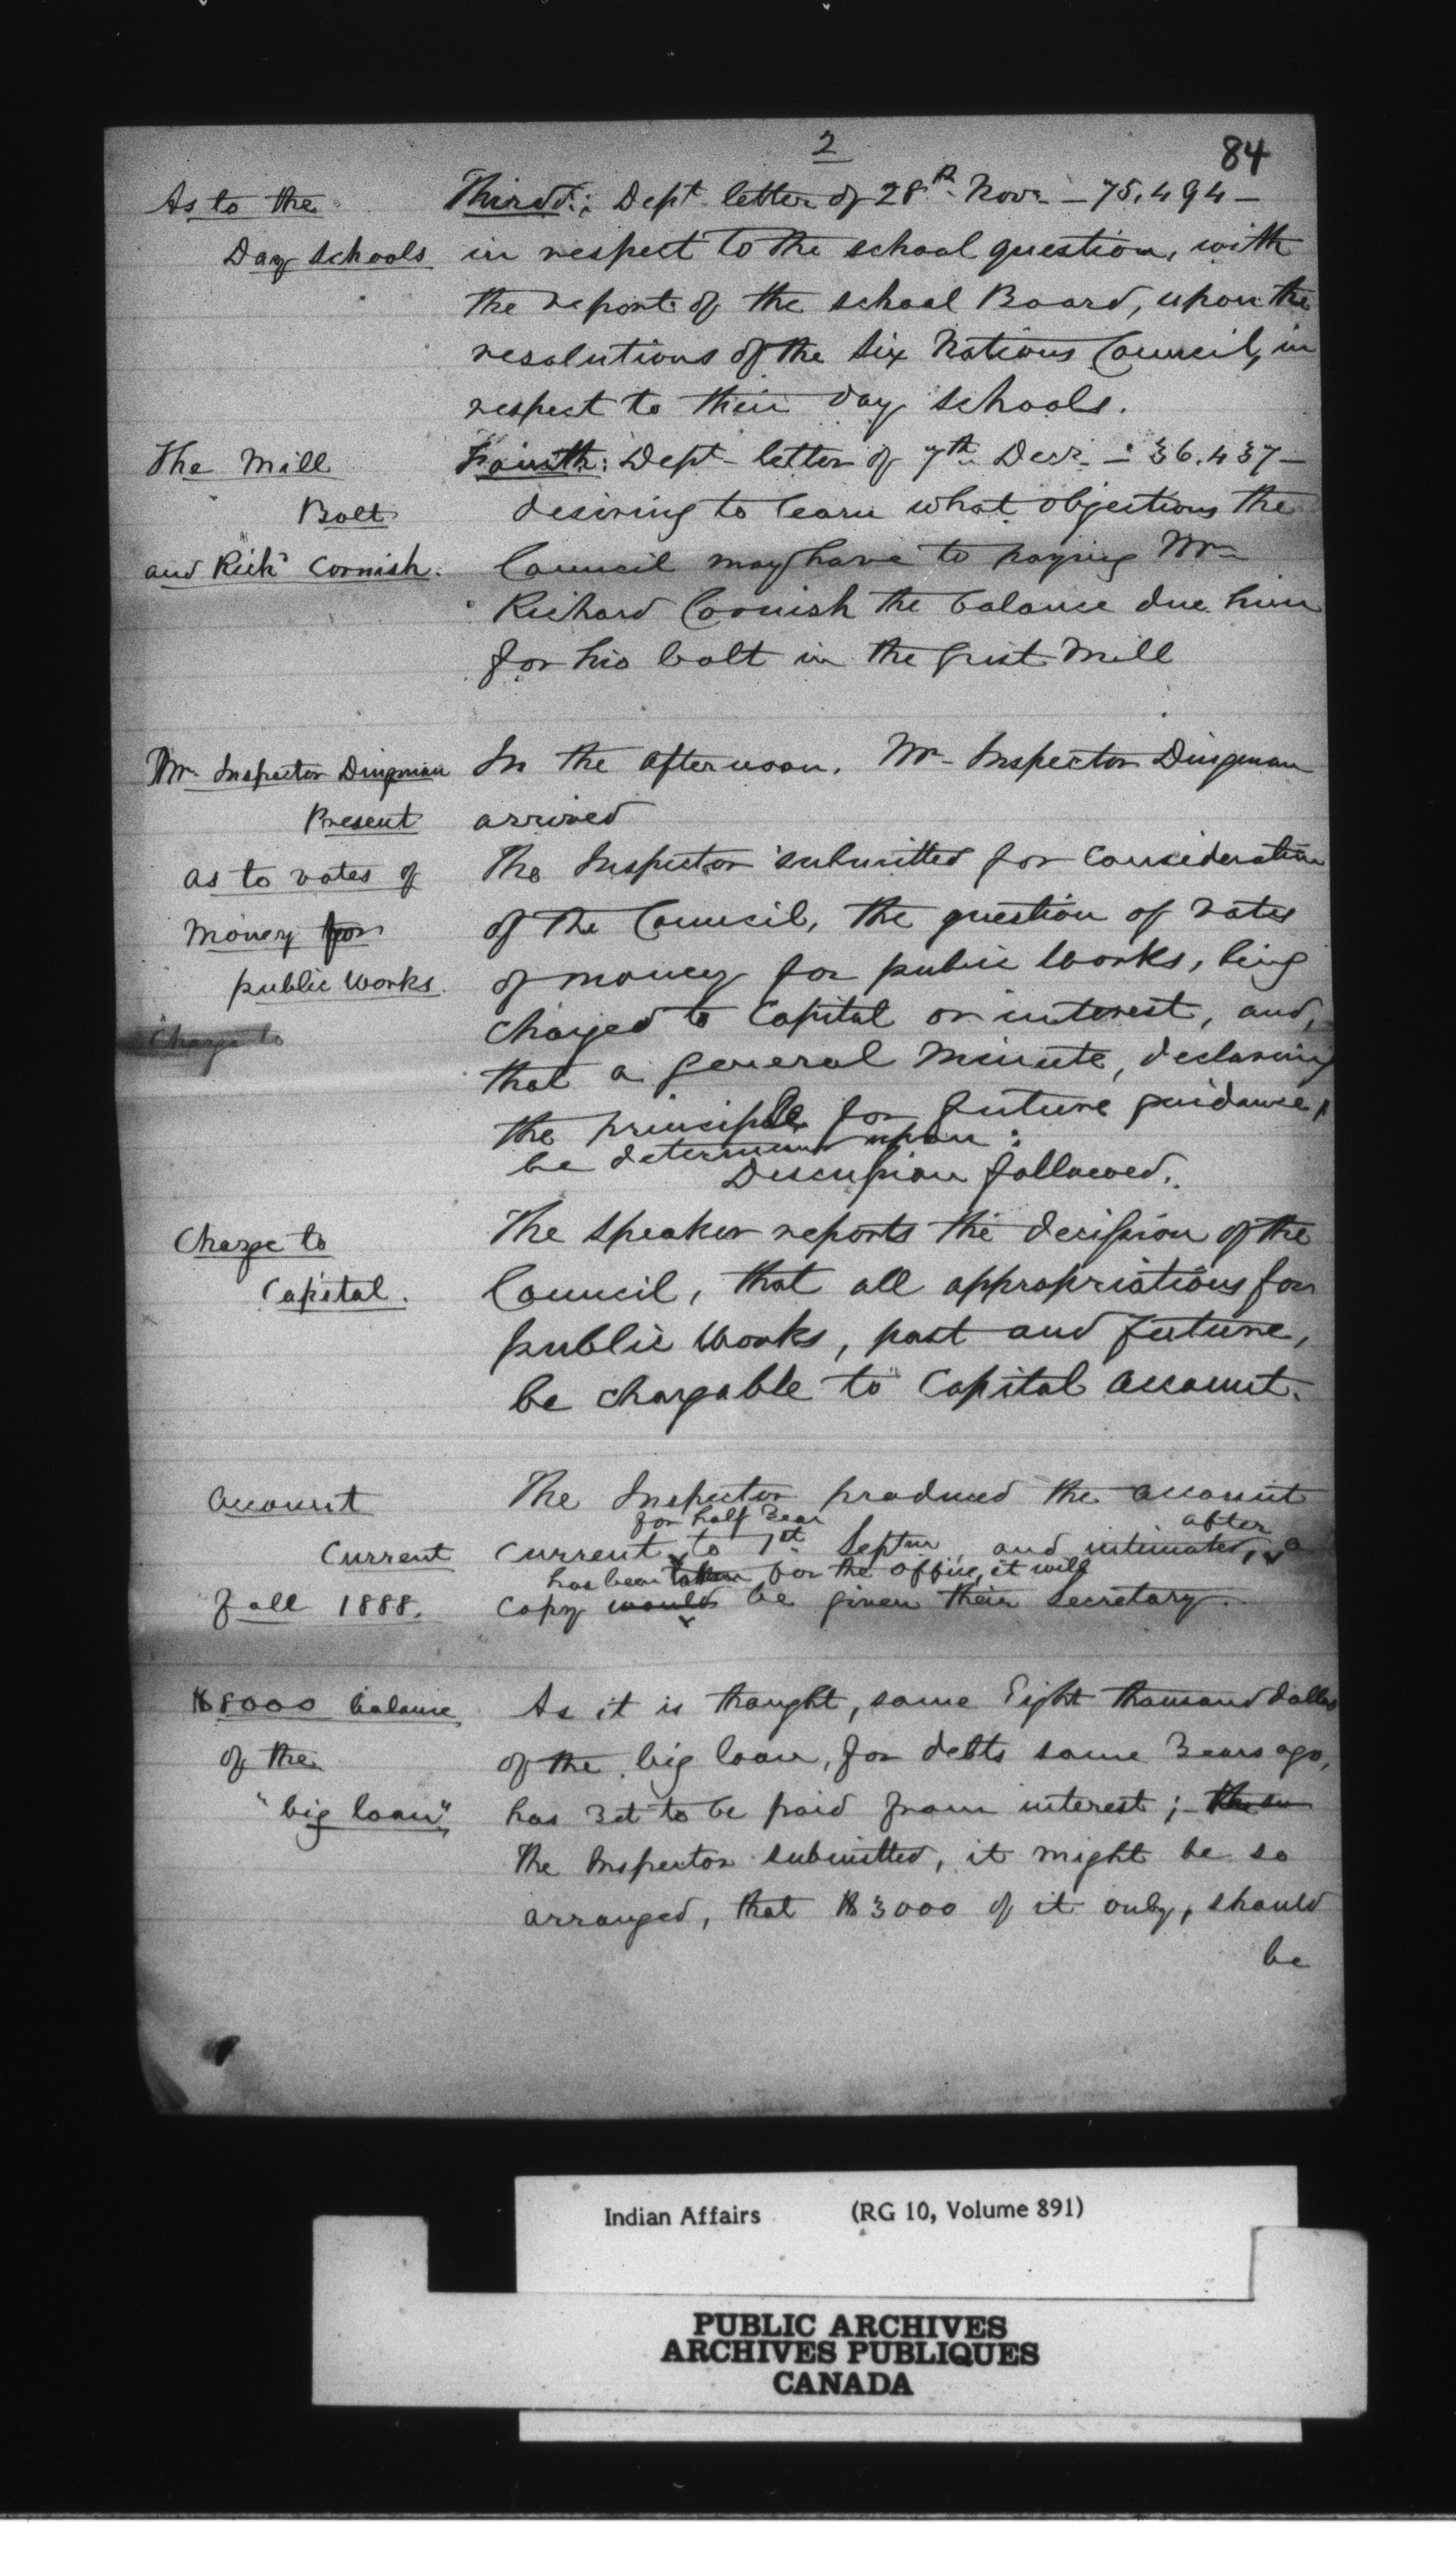 2
84
As to the
Day schools
Third: Dept letter of 28th Novr - 75,494 -
in respect to the school question, with
the report of the school Board, upon the
resolutions of the Six Nations Council, in
respect to their day schools.
The Mill
Bolt
and Richd Cornish.
Fourth: Dept letter of 7th Decr - 36,437 -
desiring to learn what objections the
Council may have to paying Mr
Richard Cornish the balance due him
for his bolt in the Grist Mill
Mr Inspector Dingman
Present
In the afternoon, Mr Inspector Dingman
arrived
as to votes of
money for
public works.
Charge to
The Inspector submitted for consideration
of the Council, the question of votes
of money for public works, being
charged to Capital or interest, and,
that a general Minute, declaring
the principle for future guidance,
be determined upon:
Discussion followed.
Charge to
Capital.
The speaker reports the decision of the
Council, that all appropriations for
public works, past and future,
be chargable to Capital account.
Account
Current
fall 1888.
The Inspector produced the account
for half Year
after
current to 1st Septmr, and intimated, a
has been taken for the office, it will
copy would be given their Secretary.
$8000 balance
of the
"big loan"
As it is thought, some Eight thousand dollars
of the big loan, for debts some Years ago,
has Yet to be paid from interest;
the Inspector submitted, it might be so
arranged, that $3000 of it only, should
be
Indian Affairs (RG 10, Volume 891)
PUBLIC ARCHIVES
ARCHIVES PUBLIQUES
CANADA